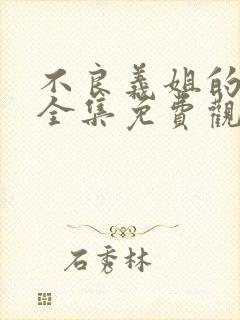 不良義姐的
全集免費觀
石秀林